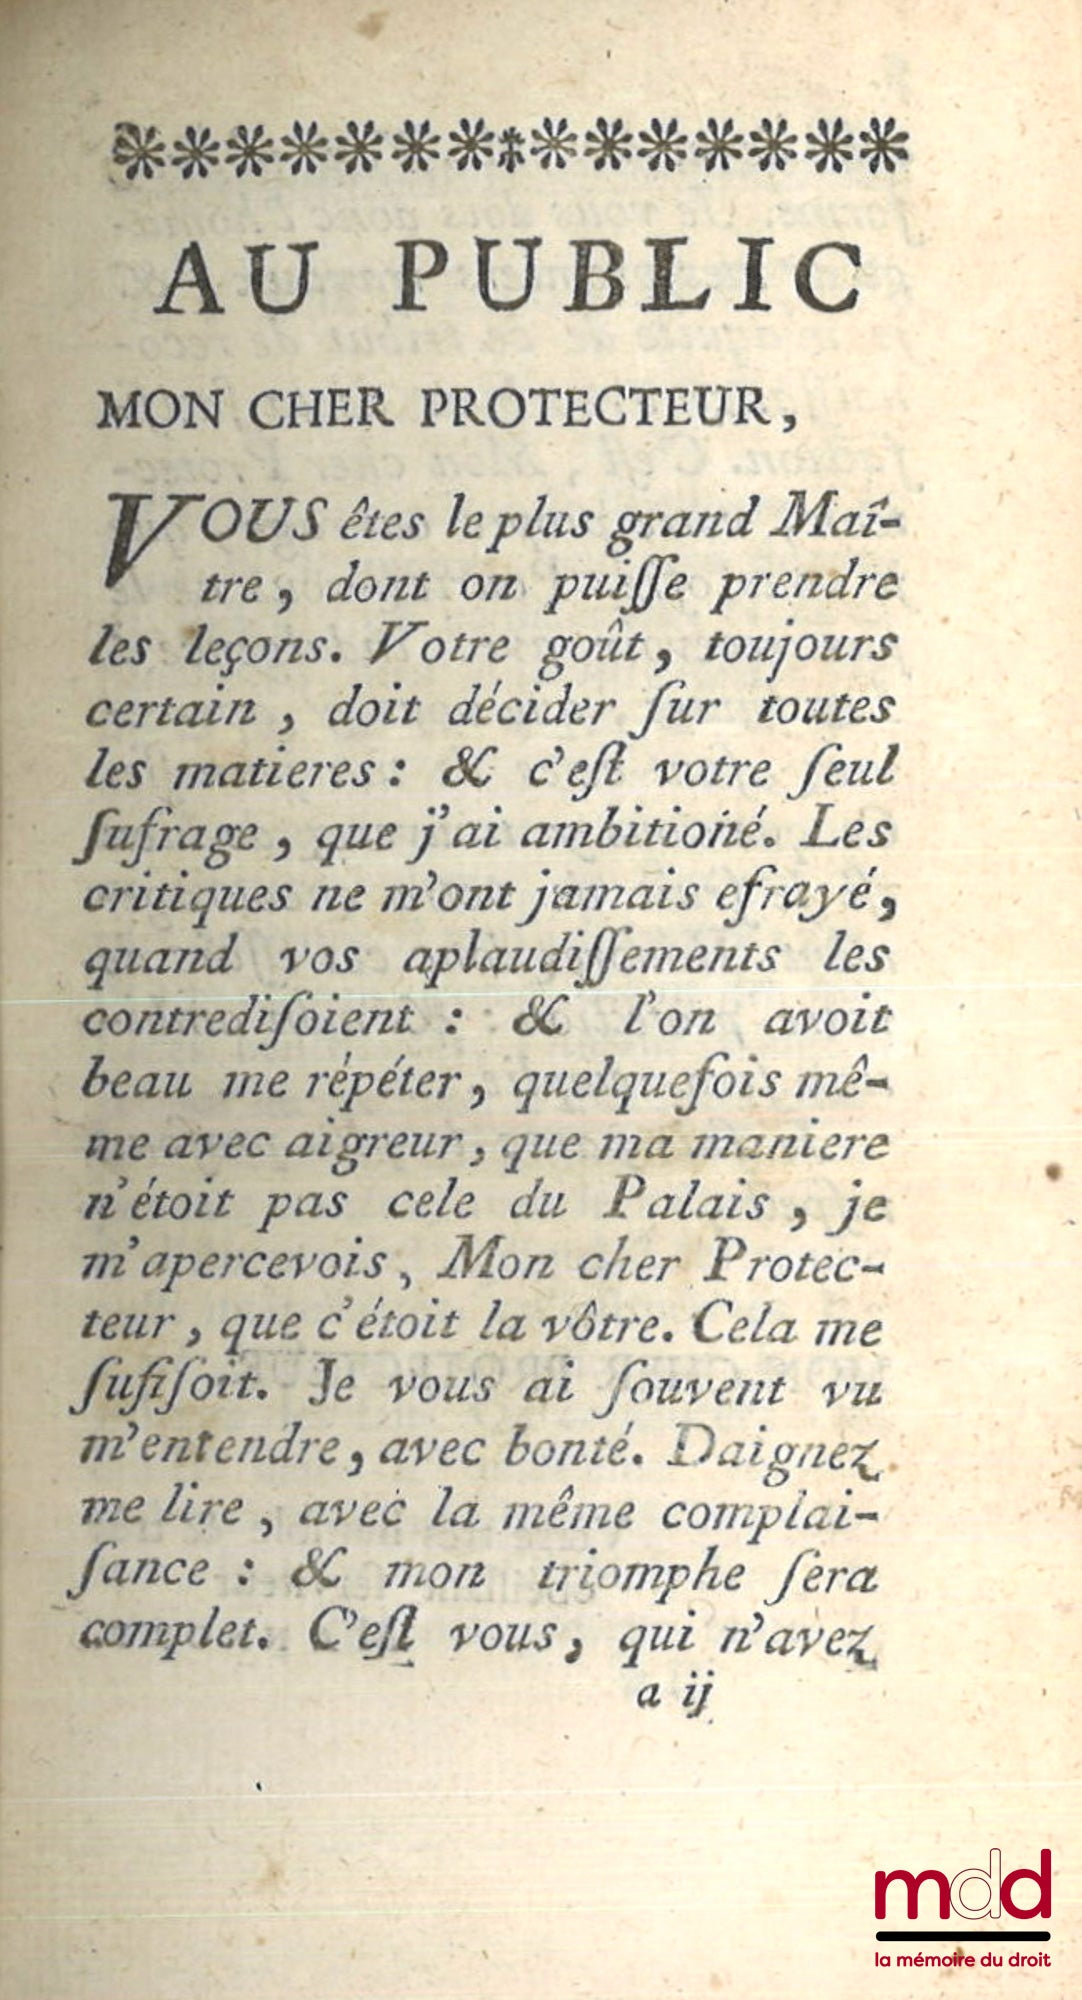 AU PUBLIC
MON CHER PROTECTEUR,
VOUS êtes le plus grand Maî-
tre, dont on puiſſe prendre
les leçons. Votre goût, toujours
certain, doit décider ſur toutes
les matieres: & c'eſt votre ſeul
ſufrage, que j'ai ambitioñé. Les
critiques ne m'ont jamais efrayé,
quand vos aplaudiſſements les
contrediſoient: & l'on avoit
beau me répéter, quelquefois mê-
me avec aigreur, que ma maniere
n'étoit pas cele du Palais, je
m'apercevois, Mon cher Protec-
teur, que c'étoit la vôtre. Cela me
ſufiſoit. Je vous ai ſouvent vu
m'entendre, avec bonté. Daignez
me lire, avec la même complai-
ſance: & mon triomphe ſera
complet. C'eſt vous, qui n'avez
a ij
mdd
la mémoire du droit